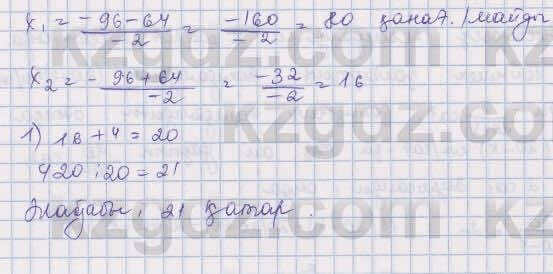 x₁ = (-96-64)/(-2) = (-160)/(-2) = 80 қанағ. /майды
x₂ = -(96+64)/(-2) = (-32)/(-2) = 16
1) 16 + 4 = 20
420 : 20 = 21
Жауабы: 21 қатар.
kzgdz.com